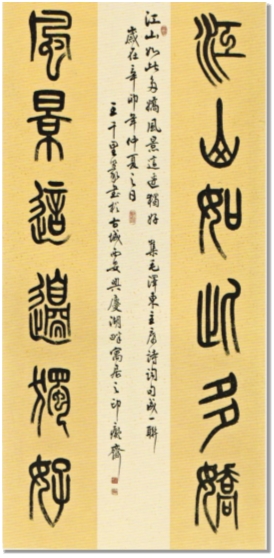 江山如此多嬌
江山如此多嬌 風景這邊獨好 集毛澤東主席詩詞句成一聯
歲在辛卯年仲夏之日
王千里篆書於古城西安興慶湖畔寓居之印癡齋
風景這邊獨好